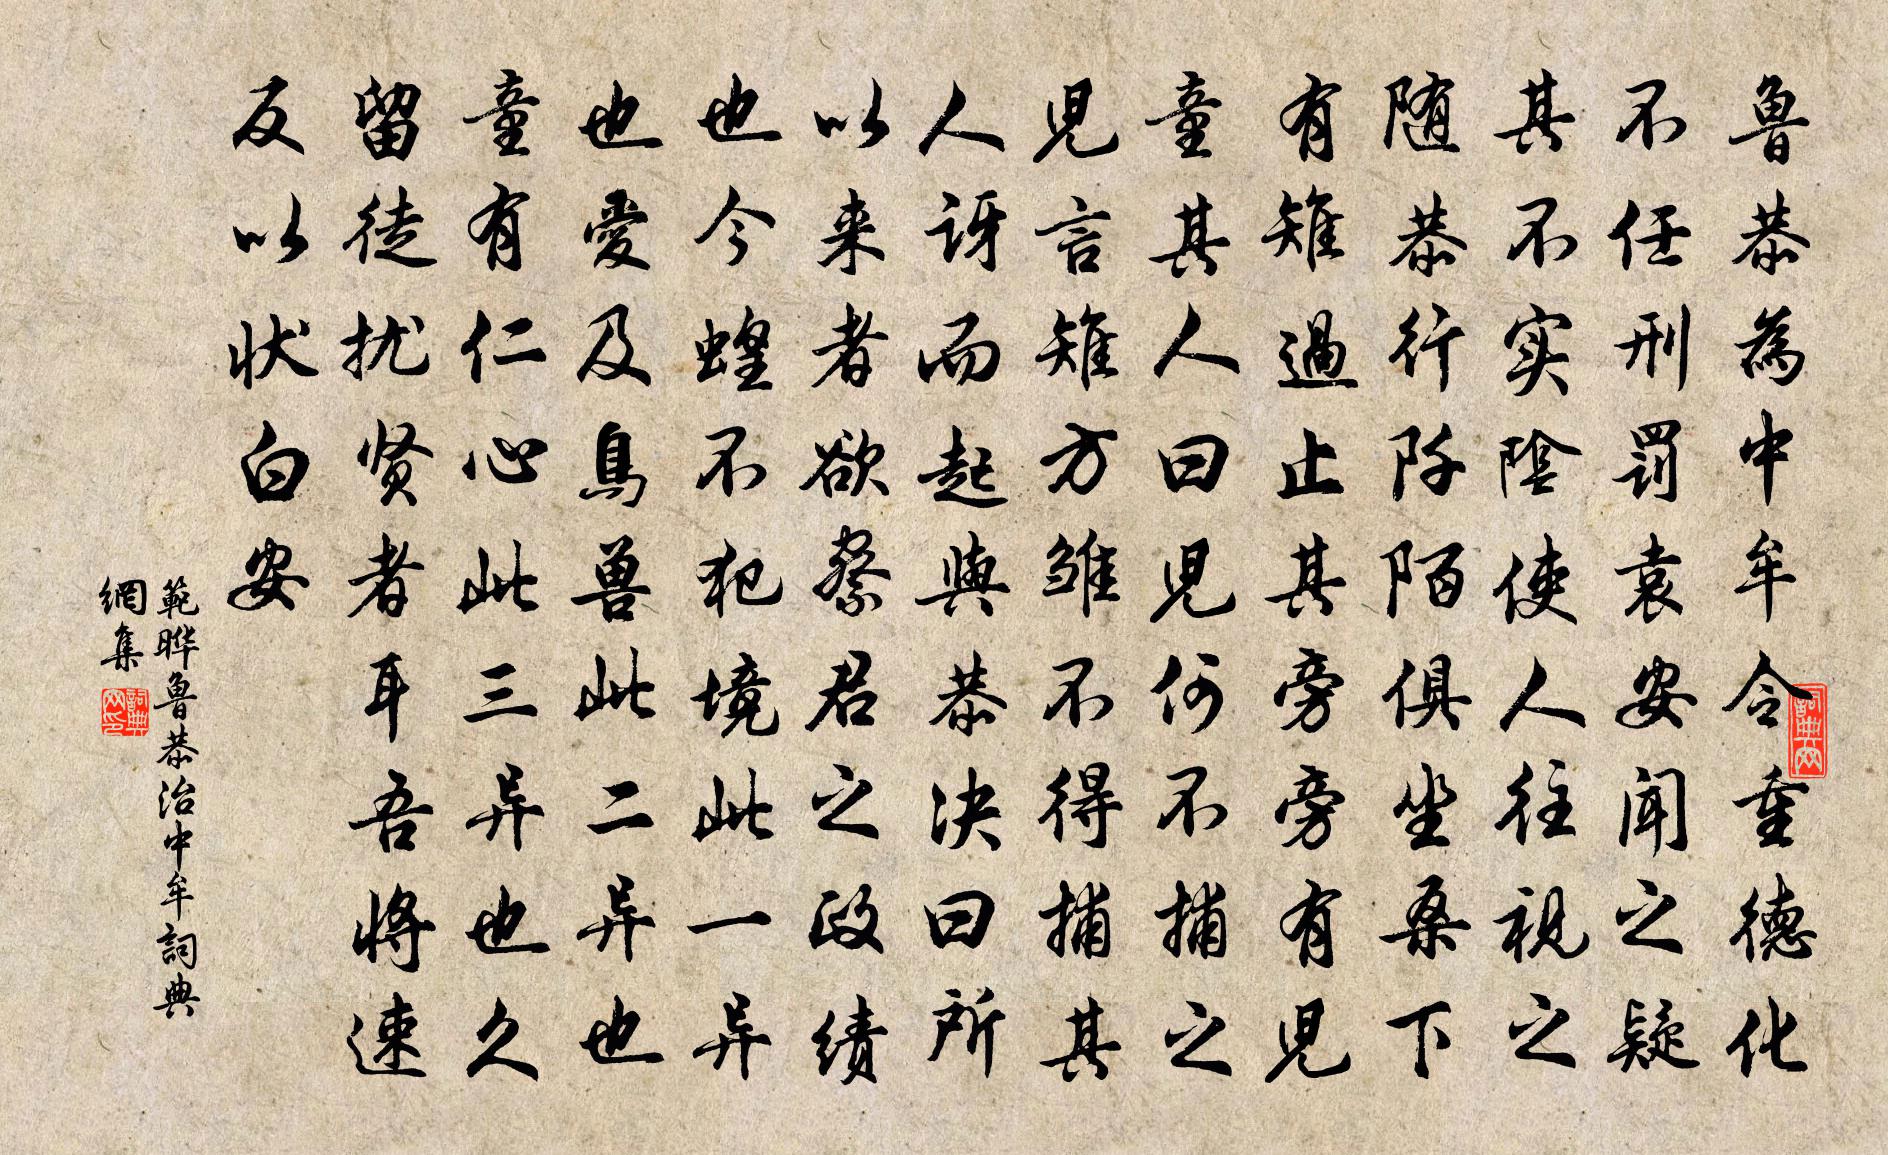 鲁恭為中牟令重德化
不任刑罚袁安闻之疑
其不实陰使人往视之
随恭行阡陌俱坐桑下
有雉過止其旁旁有児
童其人曰児何不捕之
児言雉方雏不得捕其
人讶而起與恭决曰所
以来者欲察君之政绩
也今蝗不犯境此一异
也愛及鳥兽此二异也
童有仁心此三异也久
留徒扰贤者耳吾将速
反以状白安
範晔鲁恭治中牟詞典
網集
詞典网
詞典网印